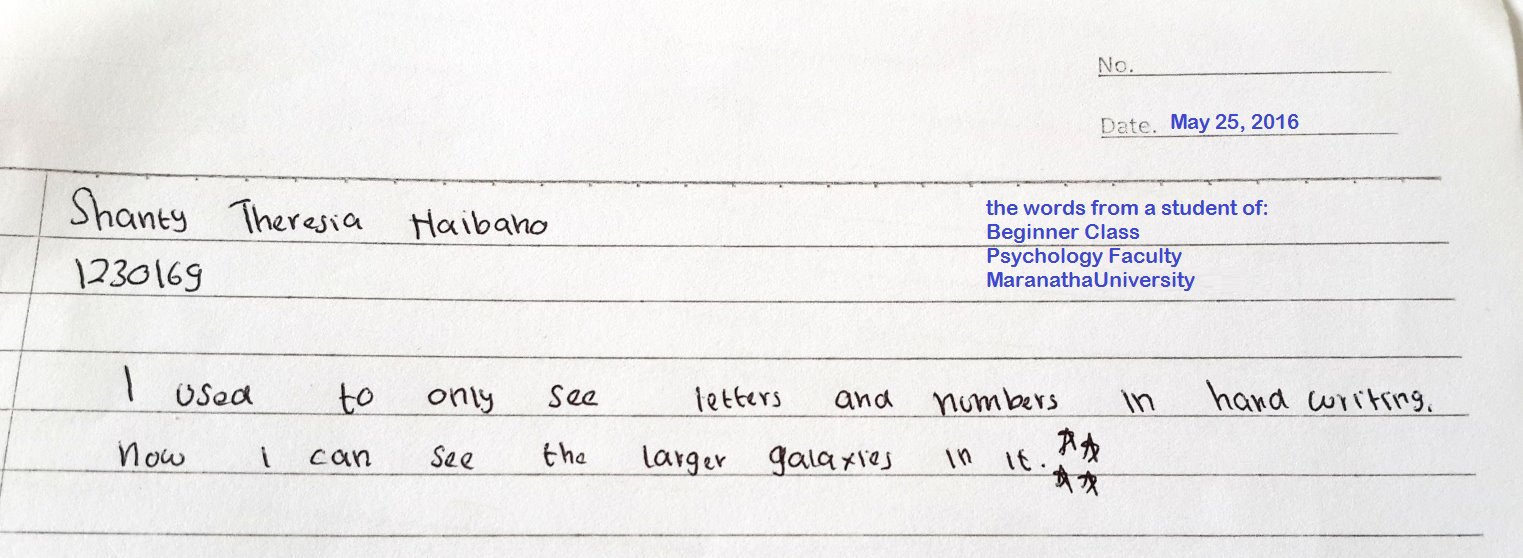 No.
Date. May 25, 2016
Shanty Theresia Haibaho
the words from a student of:
Beginner Class
1230169
Psychology Faculty
MaranathaUniversity
I used to only see letters and numbers in hand writing.
Now i can see the larger galaxies in it.